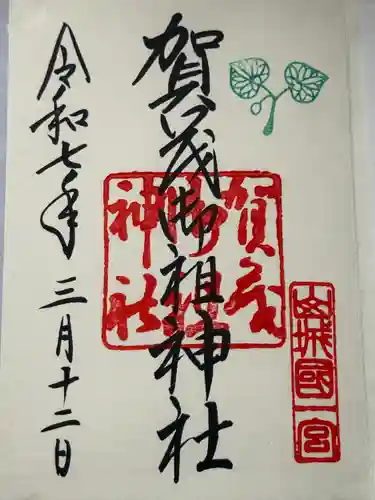 山城國一宮
賀茂御祖神社
賀茂御祖神社
令和七年三月十二日